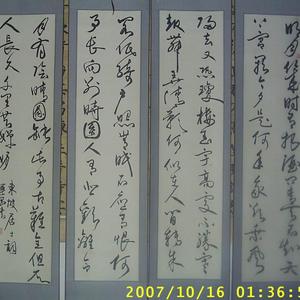 明月幾時有把酒問青天不知天
上宮闕今夕是何年我欲乘風
歸去又恐瓊樓玉宇高處不勝寒
起舞弄清影何似在人間轉朱
閣低綺戶照無眠不應有恨何
事長向別時圓人有悲歡離合
月有陰晴圓缺此事古難全但願
人長久千里共嬋娟
東坡居士詞
2007/10/16 01:36:5